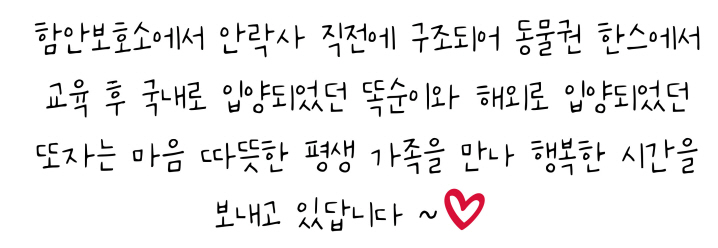 함안보호소에서 안락사 직전에 구조되어 동물권 한스에서
교육 후 국내로 입양되었던 똑순이와 해외로 입양되었던
또자는 마음 따뜻한 평생 가족을 만나 행복한 시간을
보내고 있답니다 ~